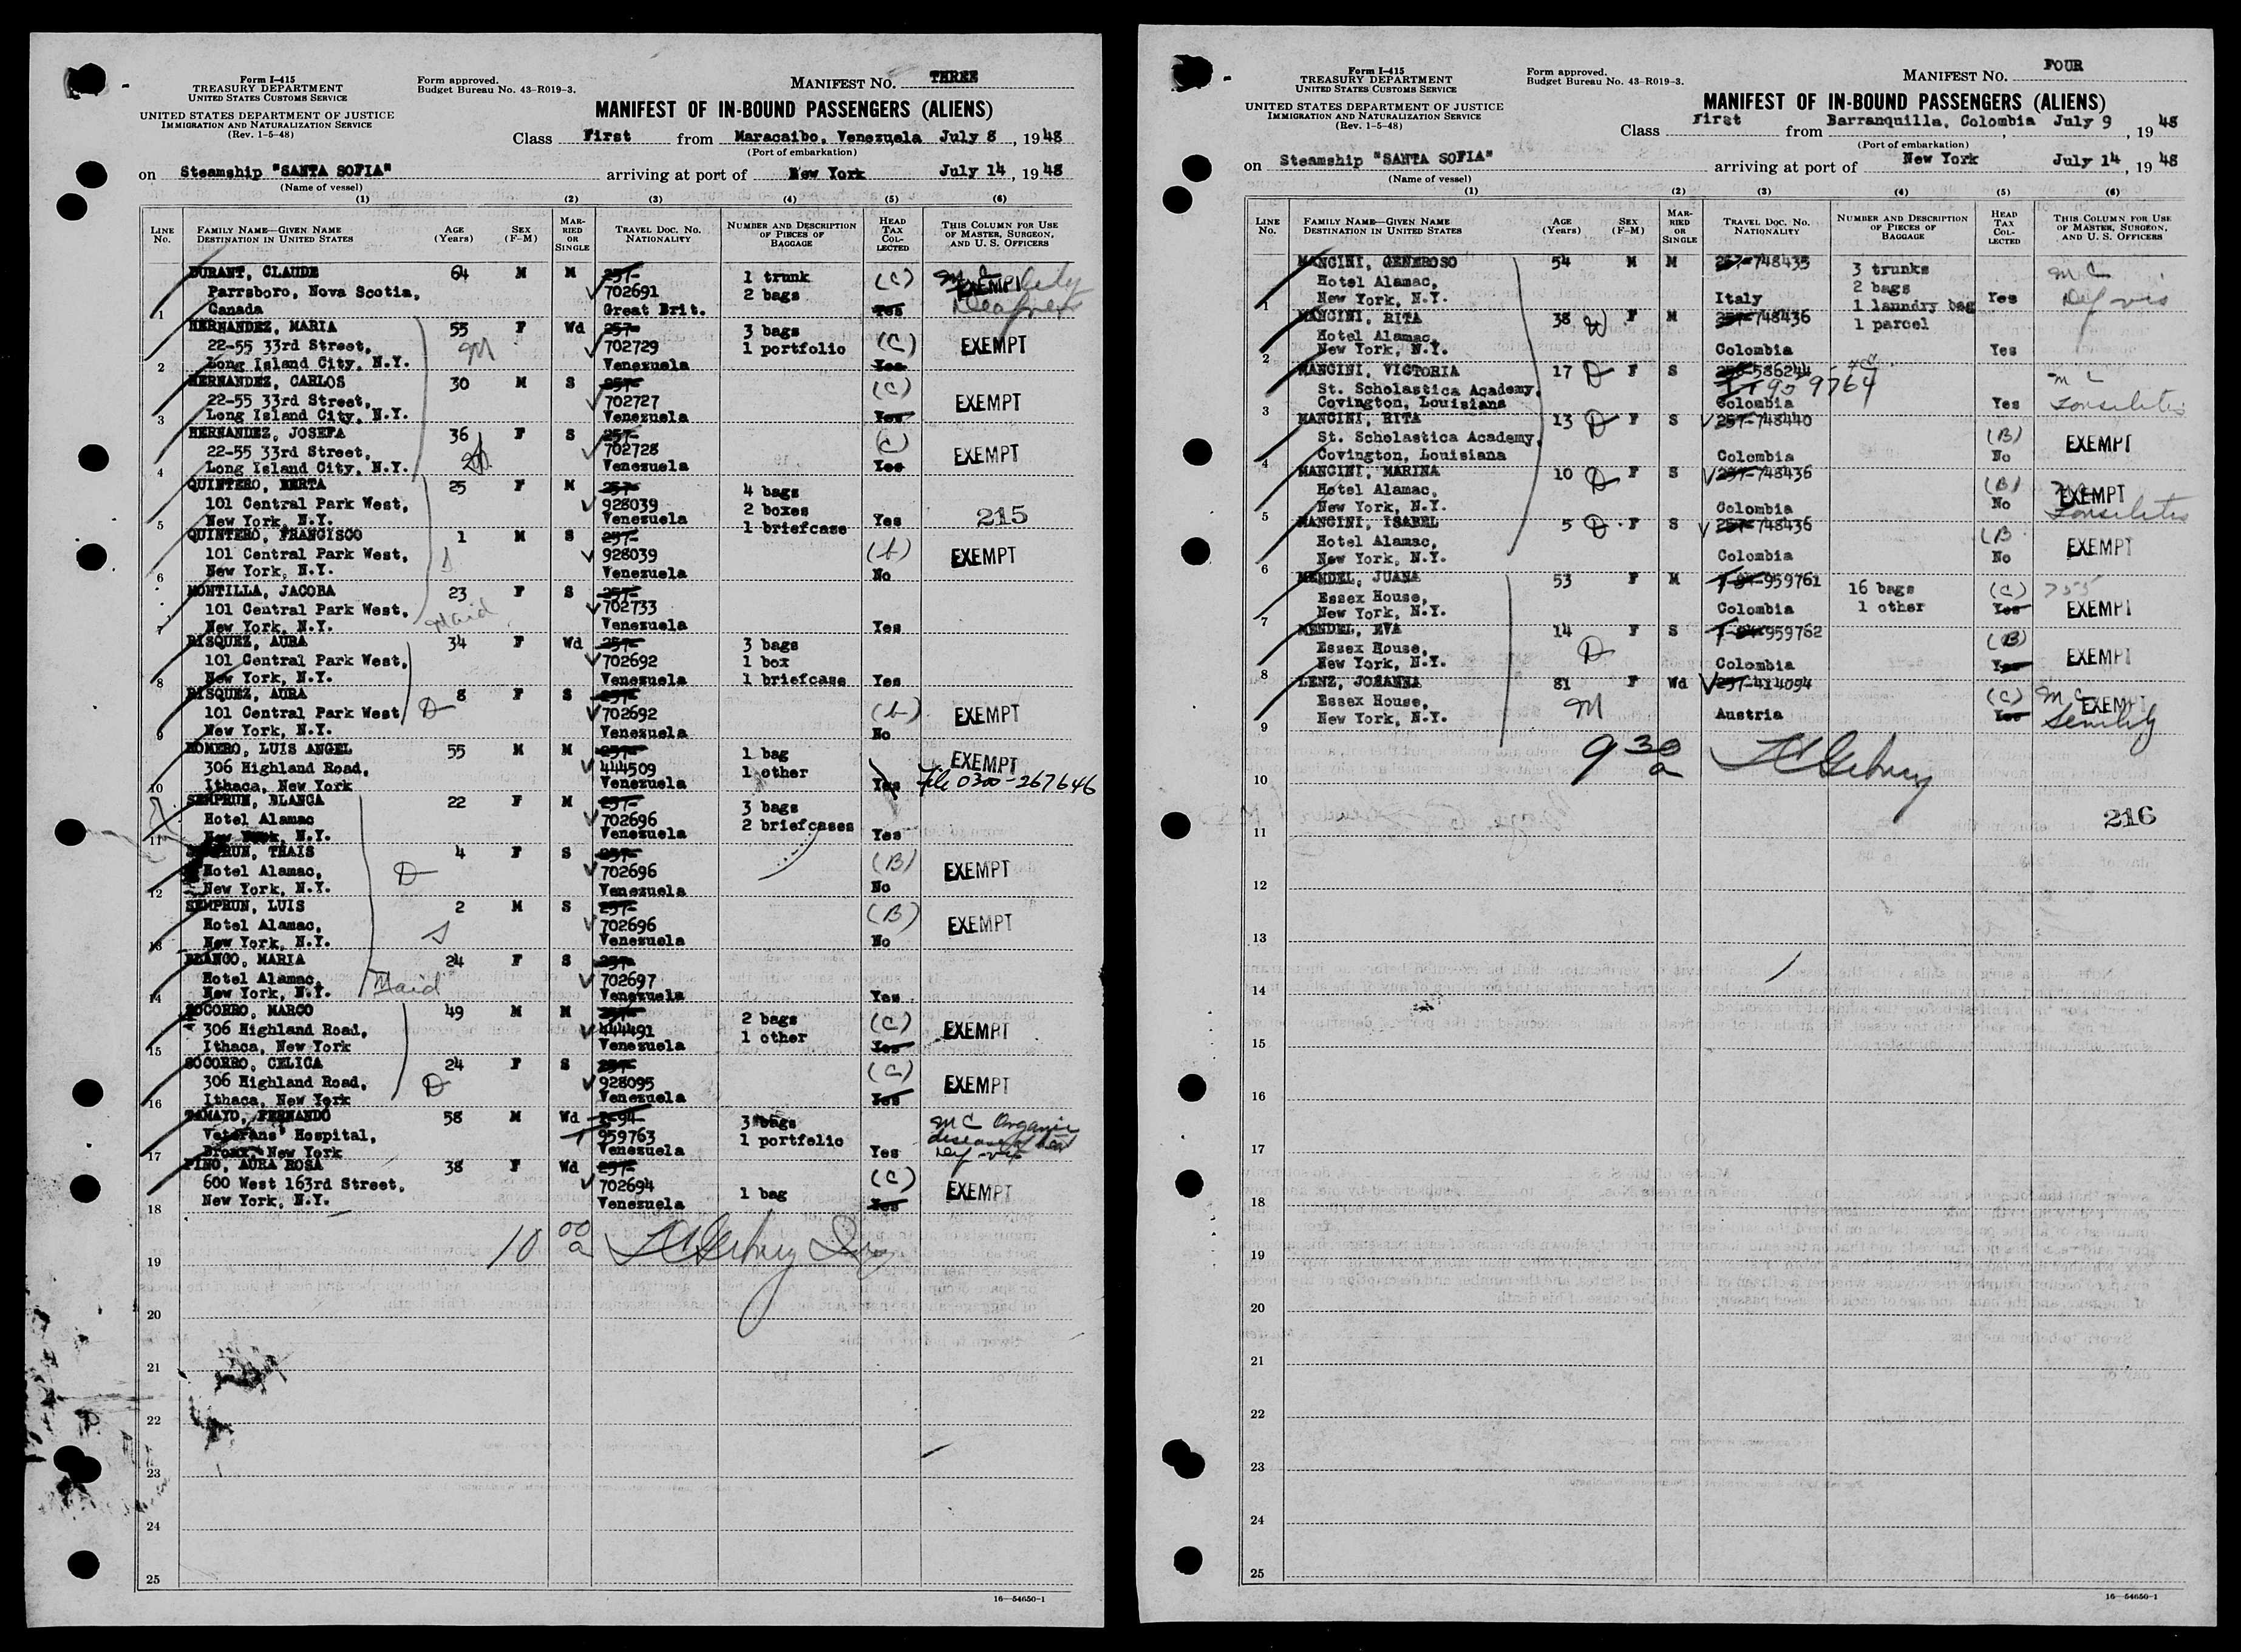 Form I-415
TREASURY DEPARTMENT
UNITED STATES CUSTOMS SERVICE
UNITED STATES DEPARTMENT OF JUSTICE
IMMIGRATION AND NATURALIZATION SERVICE
(Rev. 1-5-48)
Form approved.
Budget Bureau No. 43-R019-3.
MANIFEST NO. THREE
MANIFEST OF IN-BOUND PASSENGERS (ALIENS)
Class First from Maracaibo, Venezuela July 8, 1948
(Port of embarkation)
on Steamship "SANTA SOFIA" arriving at port of New York July 14, 1948
(Name of vessel)
(1) (2) (3) (4) (5) (6)
LINE No. FAMILY NAME—GIVEN NAME DESTINATION IN UNITED STATES AGE (Years) SEX (F-M) MARRIED OR SINGLE TRAVEL DOC. NO. NATIONALITY NUMBER AND DESCRIPTION OF PIECES OF BAGGAGE HEAD TAX COLLECTED THIS COLUMN FOR USE OF MASTER, SURGEON, AND U. S. OFFICERS
DURANT, CLAUDE 64 M M 257- 1 trunk (C) M C EXEMPT
Parrsboro, Nova Scotia, 702691 2 bags
1 Canada Great Brit. Yes
HERNANDEZ, MARIA 55 F Wd 257- 3 bags (C) EXEMPT
22-55 33rd Street, M 702729 1 portfolio
2 Long Island City, N.Y. Venezuela Yes
HERNANDEZ, CARLOS 30 M S 257- (C) EXEMPT
22-55 33rd Street, 702727
3 Long Island City, N.Y. Venezuela Yes
HERNANDEZ, JOSEFA 36 F S 257- (C) EXEMPT
22-55 33rd Street, 702728
4 Long Island City, N.Y. Venezuela Yes
QUINTERO, BERTA 25 F M 257- 4 bags
101 Central Park West, 928039 2 boxes 215
5 New York, N.Y. Venezuela 1 briefcase Yes
QUINTERO, FRANCISCO 1 M S 257-
101 Central Park West, 928039 (b) EXEMPT
6 New York, N.Y. Venezuela No
MONTILLA, JACOBA 23 F S 257-
101 Central Park West, Maid 702733
7 New York, N.Y. Venezuela Yes
RISQUEZ, AURA 34 F Wd 257- 3 bags
101 Central Park West, 702692 1 box
8 New York, N.Y. Venezuela 1 briefcase Yes
RISQUEZ, AURA 8 F S 257-
101 Central Park West D 702692 (b) EXEMPT
9 New York, N.Y. Venezuela No
ROMERO, LUIS ANGEL 55 M M 257- 1 bag EXEMPT
306 Highland Road, 444509 1 other
10 Ithaca, New York Venezuela Yes File 0300-267646
SEMPRUN, BLANCA 22 F M 257- 3 bags
Hotel Alamac 702696 2 briefcases
11 New York, N.Y. Venezuela Yes
SEMPRUN, THAIS 4 F S 257- (B)
Hotel Alamac, D 702696 EXEMPT
12 New York, N.Y. Venezuela No
SEMPRUN, LUIS 2 M S 257- (B)
Hotel Alamac, S 702696 EXEMPT
13 New York, N.Y. Venezuela No
BLANCO, MARIA 24 F S 257-
Hotel Alamac, Maid 702697
14 New York, N.Y. Venezuela Yes
SOCORRO, MARCO 49 M M 257- 2 bags (C)
306 Highland Road, 444491 1 other EXEMPT
15 Ithaca, New York Venezuela Yes
SOCORRO, CELICA 24 F S 257- (C)
306 Highland Road, D 928095 EXEMPT
16 Ithaca, New York Venezuela Yes
TAMAYO, FERNANDO 58 M Wd 3 bags M C Organic
Veterans' Hospital, 959763 1 portfolio disease of heart
17 Bronx, New York Venezuela Yes Def vis
PINO, AURA ROSA 38 F Wd 257- (C)
600 West 163rd Street, 702694 1 bag EXEMPT
18 New York, N.Y. Venezuela Yes
10 00 a
19
20
21
22
23
24
25
16—54650-1
Form I-415
TREASURY DEPARTMENT
UNITED STATES CUSTOMS SERVICE
UNITED STATES DEPARTMENT OF JUSTICE
IMMIGRATION AND NATURALIZATION SERVICE
(Rev. 1-5-48)
Form approved.
Budget Bureau No. 43-R019-3.
MANIFEST NO. FOUR
MANIFEST OF IN-BOUND PASSENGERS (ALIENS)
Class First from Barranquilla, Colombia July 9, 1948
(Port of embarkation)
on Steamship "SANTA SOFIA" arriving at port of New York July 14, 1948
(Name of vessel)
(1) (2) (3) (4) (5) (6)
LINE No. FAMILY NAME—GIVEN NAME DESTINATION IN UNITED STATES AGE (Years) SEX (F-M) MARRIED OR SINGLE TRAVEL DOC. NO. NATIONALITY NUMBER AND DESCRIPTION OF PIECES OF BAGGAGE HEAD TAX COLLECTED THIS COLUMN FOR USE OF MASTER, SURGEON, AND U. S. OFFICERS
MANCINI, GENEROSO 54 M M 257-748435 3 trunks M C
Hotel Alamac, 2 bags
1 New York, N.Y. Italy 1 laundry bag Yes Def vis
MANCINI, RITA 38 W F M 257-748436 1 parcel
Hotel Alamac,
2 New York, N.Y. Colombia Yes
MANCINI, VICTORIA 17 D F S 586244 M C
St. Scholastica Academy, 959764
3 Covington, Louisiana Colombia Yes Tonsilitis
MANCINI, RITA 13 D F S 257-748440
St. Scholastica Academy, (B) EXEMPT
4 Covington, Louisiana Colombia No
MANCINI, MARINA 10 D F S 257-748436
Hotel Alamac, (B) EXEMPT
5 New York, N.Y. Colombia No Tonsilitis
MANCINI, ISABEL 5 D F S 257-748436
Hotel Alamac, (B EXEMPT
6 New York, N.Y. Colombia No
MENDEL, JUANA 53 F M 959761 16 bags (C)
Essex House, Colombia 1 other Yes EXEMPT
7 New York, N.Y.
MENDEL, EVA 14 F S 959762 (B)
Essex House, D EXEMPT
8 New York, N.Y. Colombia Yes
LENZ, JOHANNA 81 F Wd 257-414094 (C) M C EXEMPT
Essex House, M Yes Senility
9 New York, N.Y. Austria
9 30 a
10
11 216
12
13
14
15
16
17
18
19
20
21
22
23
24
25
16—54650-1